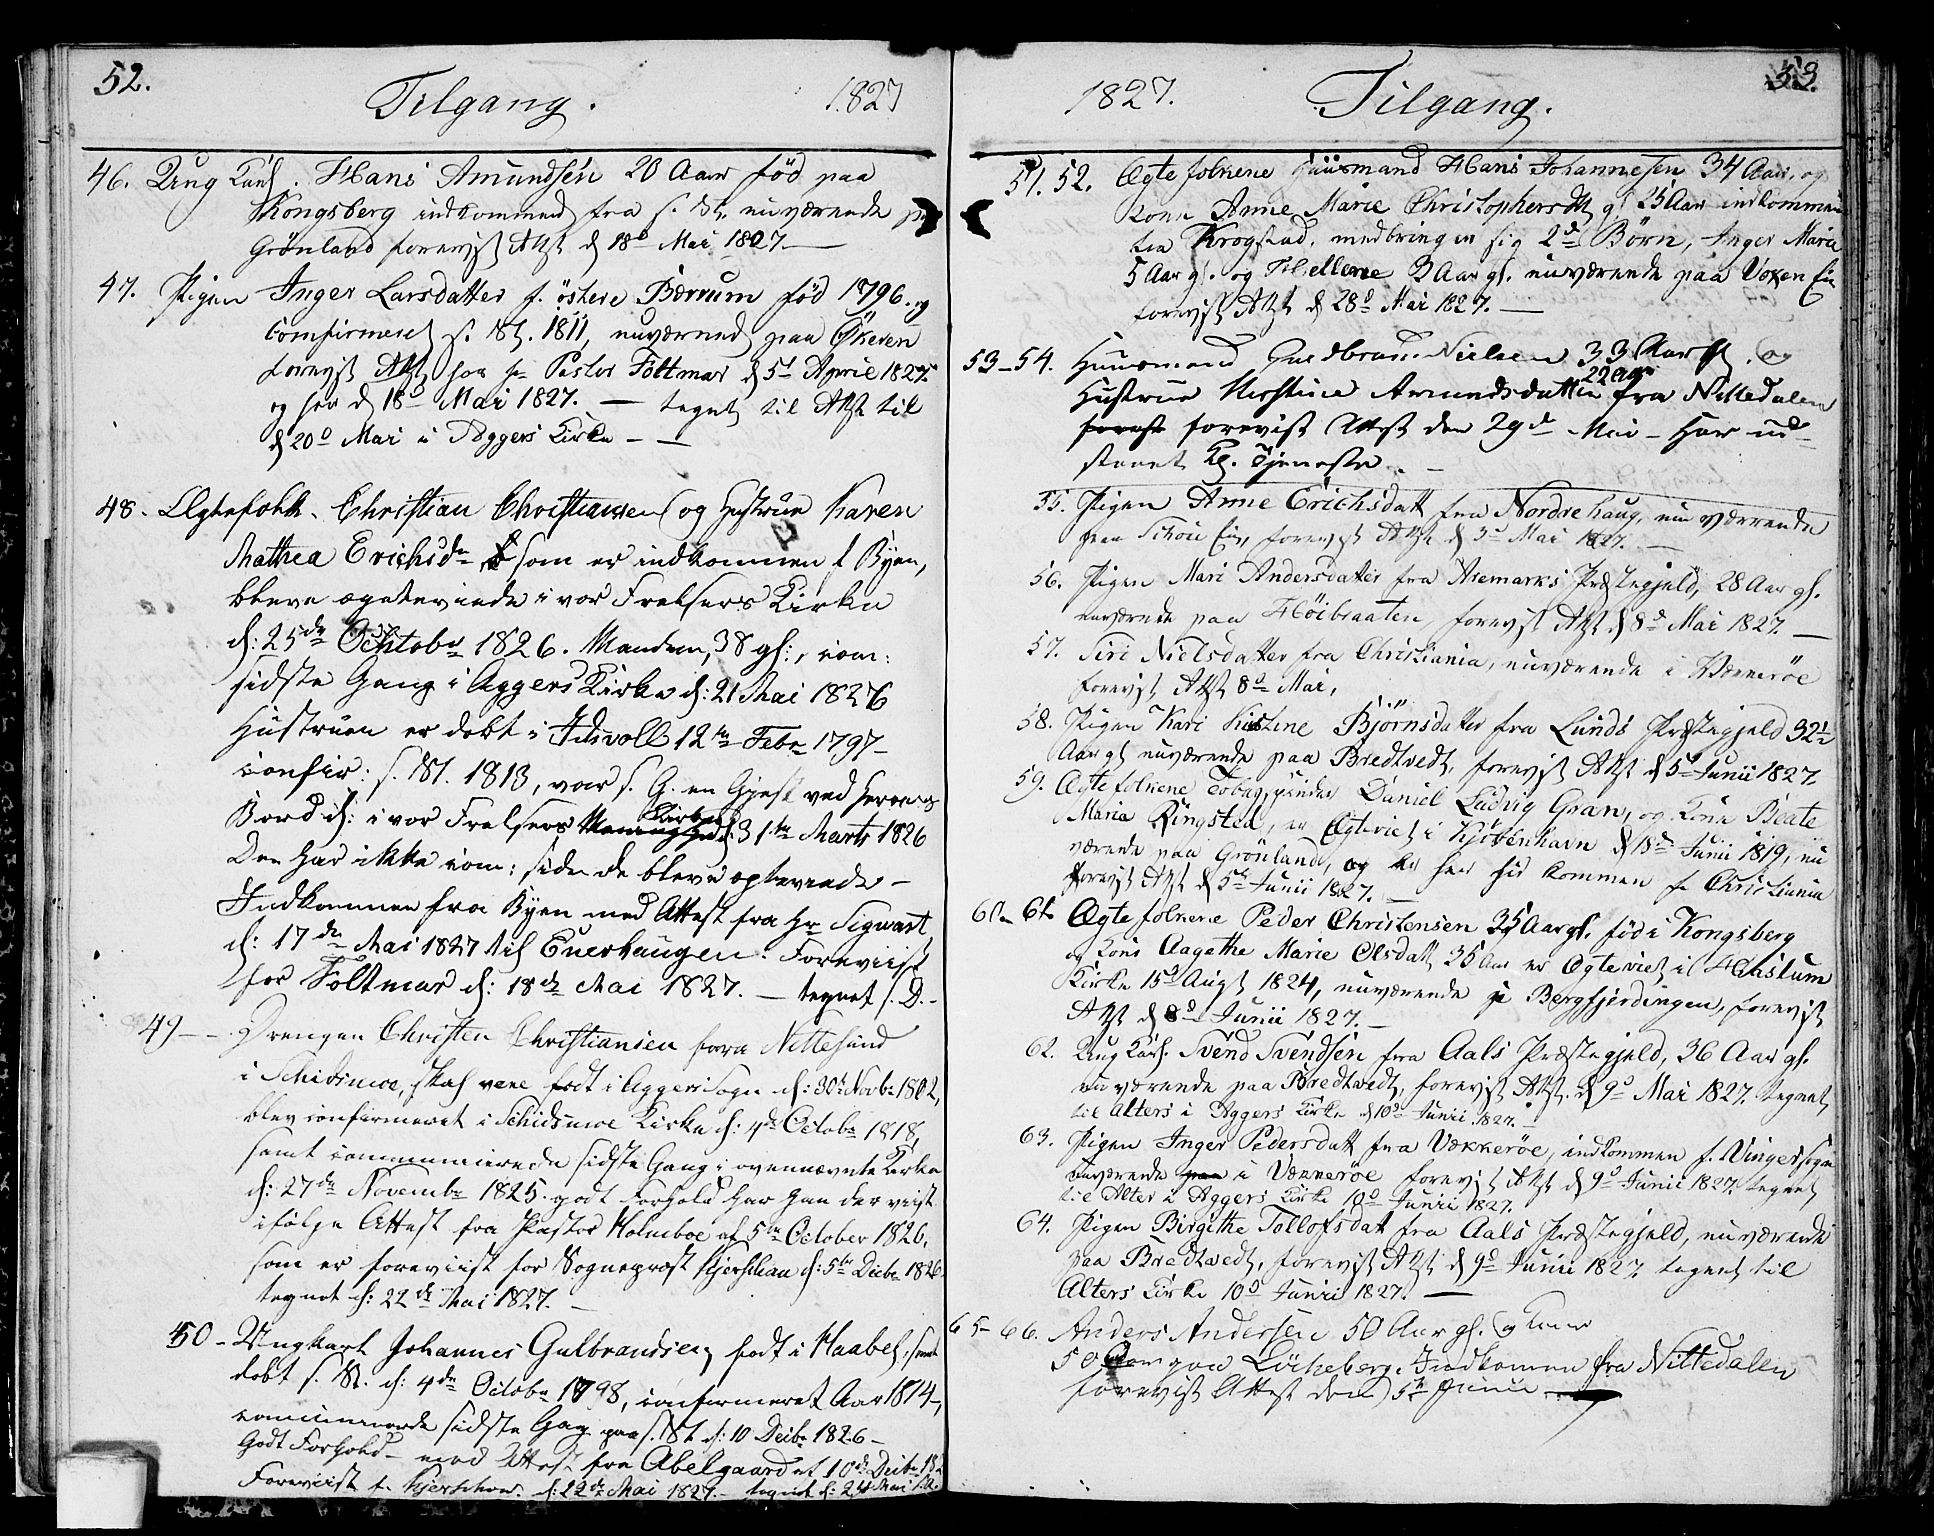 52.
Tilgang.
1827
46. Ung Karl. Hans Amundsen 20 Aar fød paa
Kongsberg indkommen fra s. St. nuværende p
Grønland forevist Attst d 18d Mai 1827. —
47. Pigen Inger Larsdatter f. östere Bærrum fød 1796. og
Comfirmeret s. St. 1811, nuværend paa Økeren
forevist Attst hos hr Pastor Foltmar d 5t April 1827.
og her d 18d Mai 1827. — tegnet til Attst til
d 20d Mai i Aggers Kirke —
48. Ægtefolk. Christian Christiansen og Hustrue Karen
Mathea Erichsdr som er indkommen f Byen,
bleve ægteviede i vor Frelsers Kirke
d: 25de Octobr 1826. Manden, 38 gl:, com:
sidste Gang i Aggers Kirke d: 21 Mai 1826
Hustruen er døbt i Eidsvoll 12te Febr 1797—
confir: s. St. 1813, var s. G. en Gjest ved Herrens
Bord d: i vor Frelsers Kirke d: 31te Marts 1826
Den har ikke com: siden de bleve ægteviede —
Indkommen fra Byen med Attest fra Hr Sigwart
d: 17de Mai 1827 til Enerhaugen. Foreviist
for Foltmar d: 18de Mai 1827. — tegnet s. D. —
49 — Drengen Christen Christiansen fra Nittesund
i Schidsmoe, skal være født i Aggers Sogn d: 30te Novbr 1802,
blev confirmeret i Schidsmoe Kirke d: 4de Octobr 1818,
samt communicerede sidste Gang i ovennævnte Kirke
d: 27de Novembr 1825. godt Forhold har han der viist
ifølge Attest fra Pastor Holmboe af 5te October 1826.
som er foreviist for Sogneprest Kjerschau d: 5te Decbr 1826.
tegnet d: 22de Mai 1827. —
50 — Ungkarl Johannes Gulbrandsen født i Haabel, samt
døbt s. St. d: 4de Octobr 1798, confirmeret Aar 1814—,
communicerede sidste Gang paa s. St d: 10 Decbr 1826 —
Godt Forhold — med Attest fra Abelgaard af 10de Decbr 18
Foreviist f. Kjerschow. d: 22de Mai 1827. — tegnet d: 24 Mai s. A.
1827.
Tilgang.
53.
51. 52. Ægtefolkene Huusmand Hans Johannesen 34 Aar, og
Kone Anne Marie Christophersdtt gl 25 Aar indkommen
fra Krogstad, medbringer sig 2de Børn, Inger Maria
5 Aar gl. og Hellene 3 Aar gl. nuværende paa Voxen Eie
forevist Attst d 28d Mai 1827. —
53—54. Huusmand Guldbran Nielsen 33 Aar gl. og
Hustrue Kirstine Armundsdatter 22 Aar fra Nittedalen
forevist Attest den 29d Mai — Har ud-
staaet Kl. Tjeneste. —
55. Pigen Anne Erichsdatt fra Nordrehaug, nuværende
paa Schou Eie, forevist Attst d 3d Mai 1827. —
56. Pigen Mari Andersdatter fra Aremarks Præstegjeld, 28 Aar gl.
nuværende paa Höibraaten, forevist Attst d 8d Mai 1827. —
57. Siri Nielsdatter fra Christiania, nuværende i Vækkerøe
forevist Attst 8d Mai,
58. Pigen Kari Kistine Björnsdatter fra Lunds Præstegjeld 32½
Aar gl nuværende paa Bredtvedt, forevist Attst d 5d Junii 1827.
59. Ægtefolkene Tobagspinder Daniel Ludvig Gran, og Kone Beate
Maria Ringsted, er Ægteviet i Kjöbenhavn d 18de Junii 1819, nu
værende paa Grönland, og er her hid kommen fr Christiania
forevist Attst d 5te Junii 1827. —
60— 61. Ægtefolkene Peder Christensen 35 Aar gl. fød i Kongsberg
og Kone Aagethe Marie Olsdatt 35 Aar er Ægteviet i Haslum
Kirke 15d Augst 1824, nuværende i Bergfjerdingen, forevist
Attst d 8d Junii 1827. —
62. Ung Karl. Svend Svendsen fra Aals Præstegjeld, 36 Aar gl.
nuværende paa Bredtvedt, forevist Attst. d 9d Mai 1827. tegnet
til Alters i Aggers Kirke d 10d Junii 1827. —
63. Pigen Inger Pedersdatt fra Vækkerøe, indkommen f. Vinger sogn
nuværende i Vækkerøe forevist Attst d 9d Junii 1827. tegnet
til Alter i Aggers Kirke 10d Junii 1827.
64. Pigen Birgithe Tollofsdatt fra Aals Præstegjeld, nuværende
paa Bredtvedt, forevist Attst d 9d Junii 1827. tegnet til
Alters Kirke 10d Junii 1827. —
65— 66. Anders Andersen 50 Aar gl. og Kone
50 Aar paa Lökeberg. Indkomen fra Nittedalen
forevist Attest den 5te Junii —